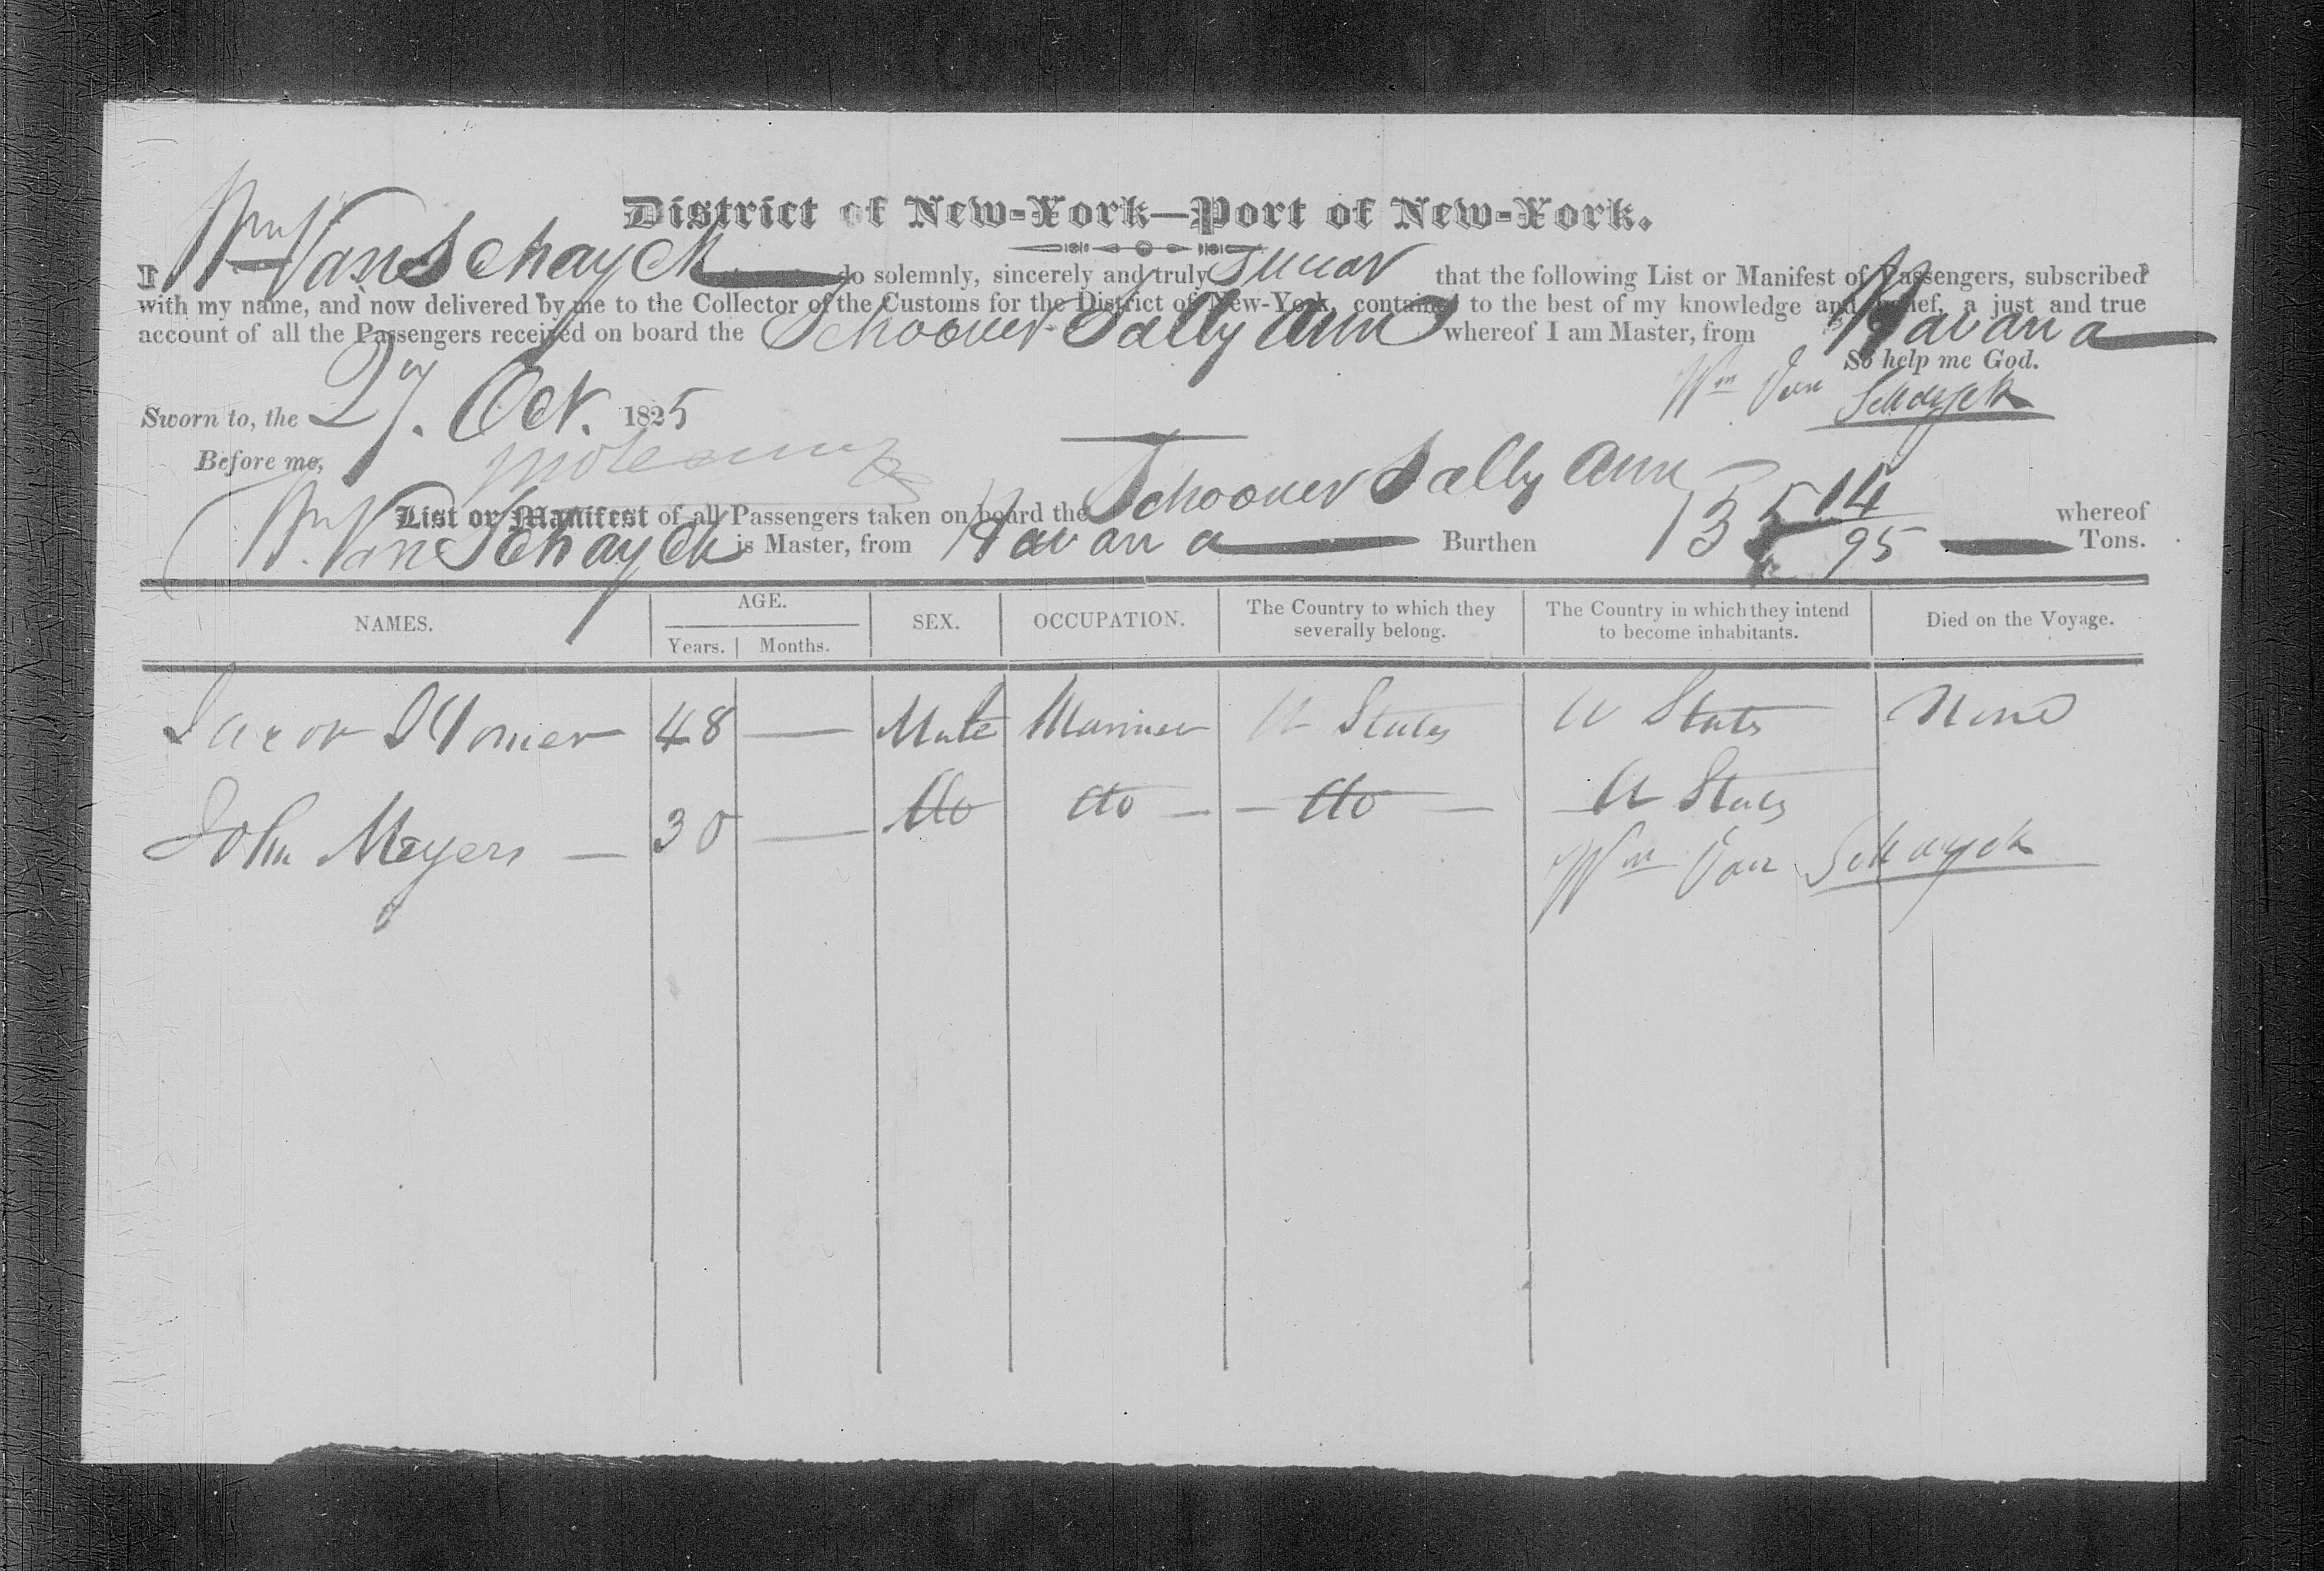 District of New-York—Port of New-York.
I Wm Van Schayck do solemnly, sincerely and truly swear that the following List or Manifest of Passengers, subscribed
with my name, and now delivered by me to the Collector of the Customs for the District of New-York, contains to the best of my knowledge and belief, a just and true
account of all the Passengers received on board the Schooner Sally Ann whereof I am Master, from Havana
So help me God.
Sworn to, the 27. Oct. 1825
Wm Van Schayck
Before me,
List or Manifest of all Passengers taken on board the Schooner Sally Ann whereof
Wm Van Schayck is Master, from Havana Burthen 135 14/95 Tons.
NAMES. AGE. Years. Months. SEX. OCCUPATION. The Country to which they severally belong. The Country in which they intend to become inhabitants. Died on the Voyage.
48 — Male Mariner U States U States None
John Meyers — 30 — do do — — do — U States
Wm Van Schayck